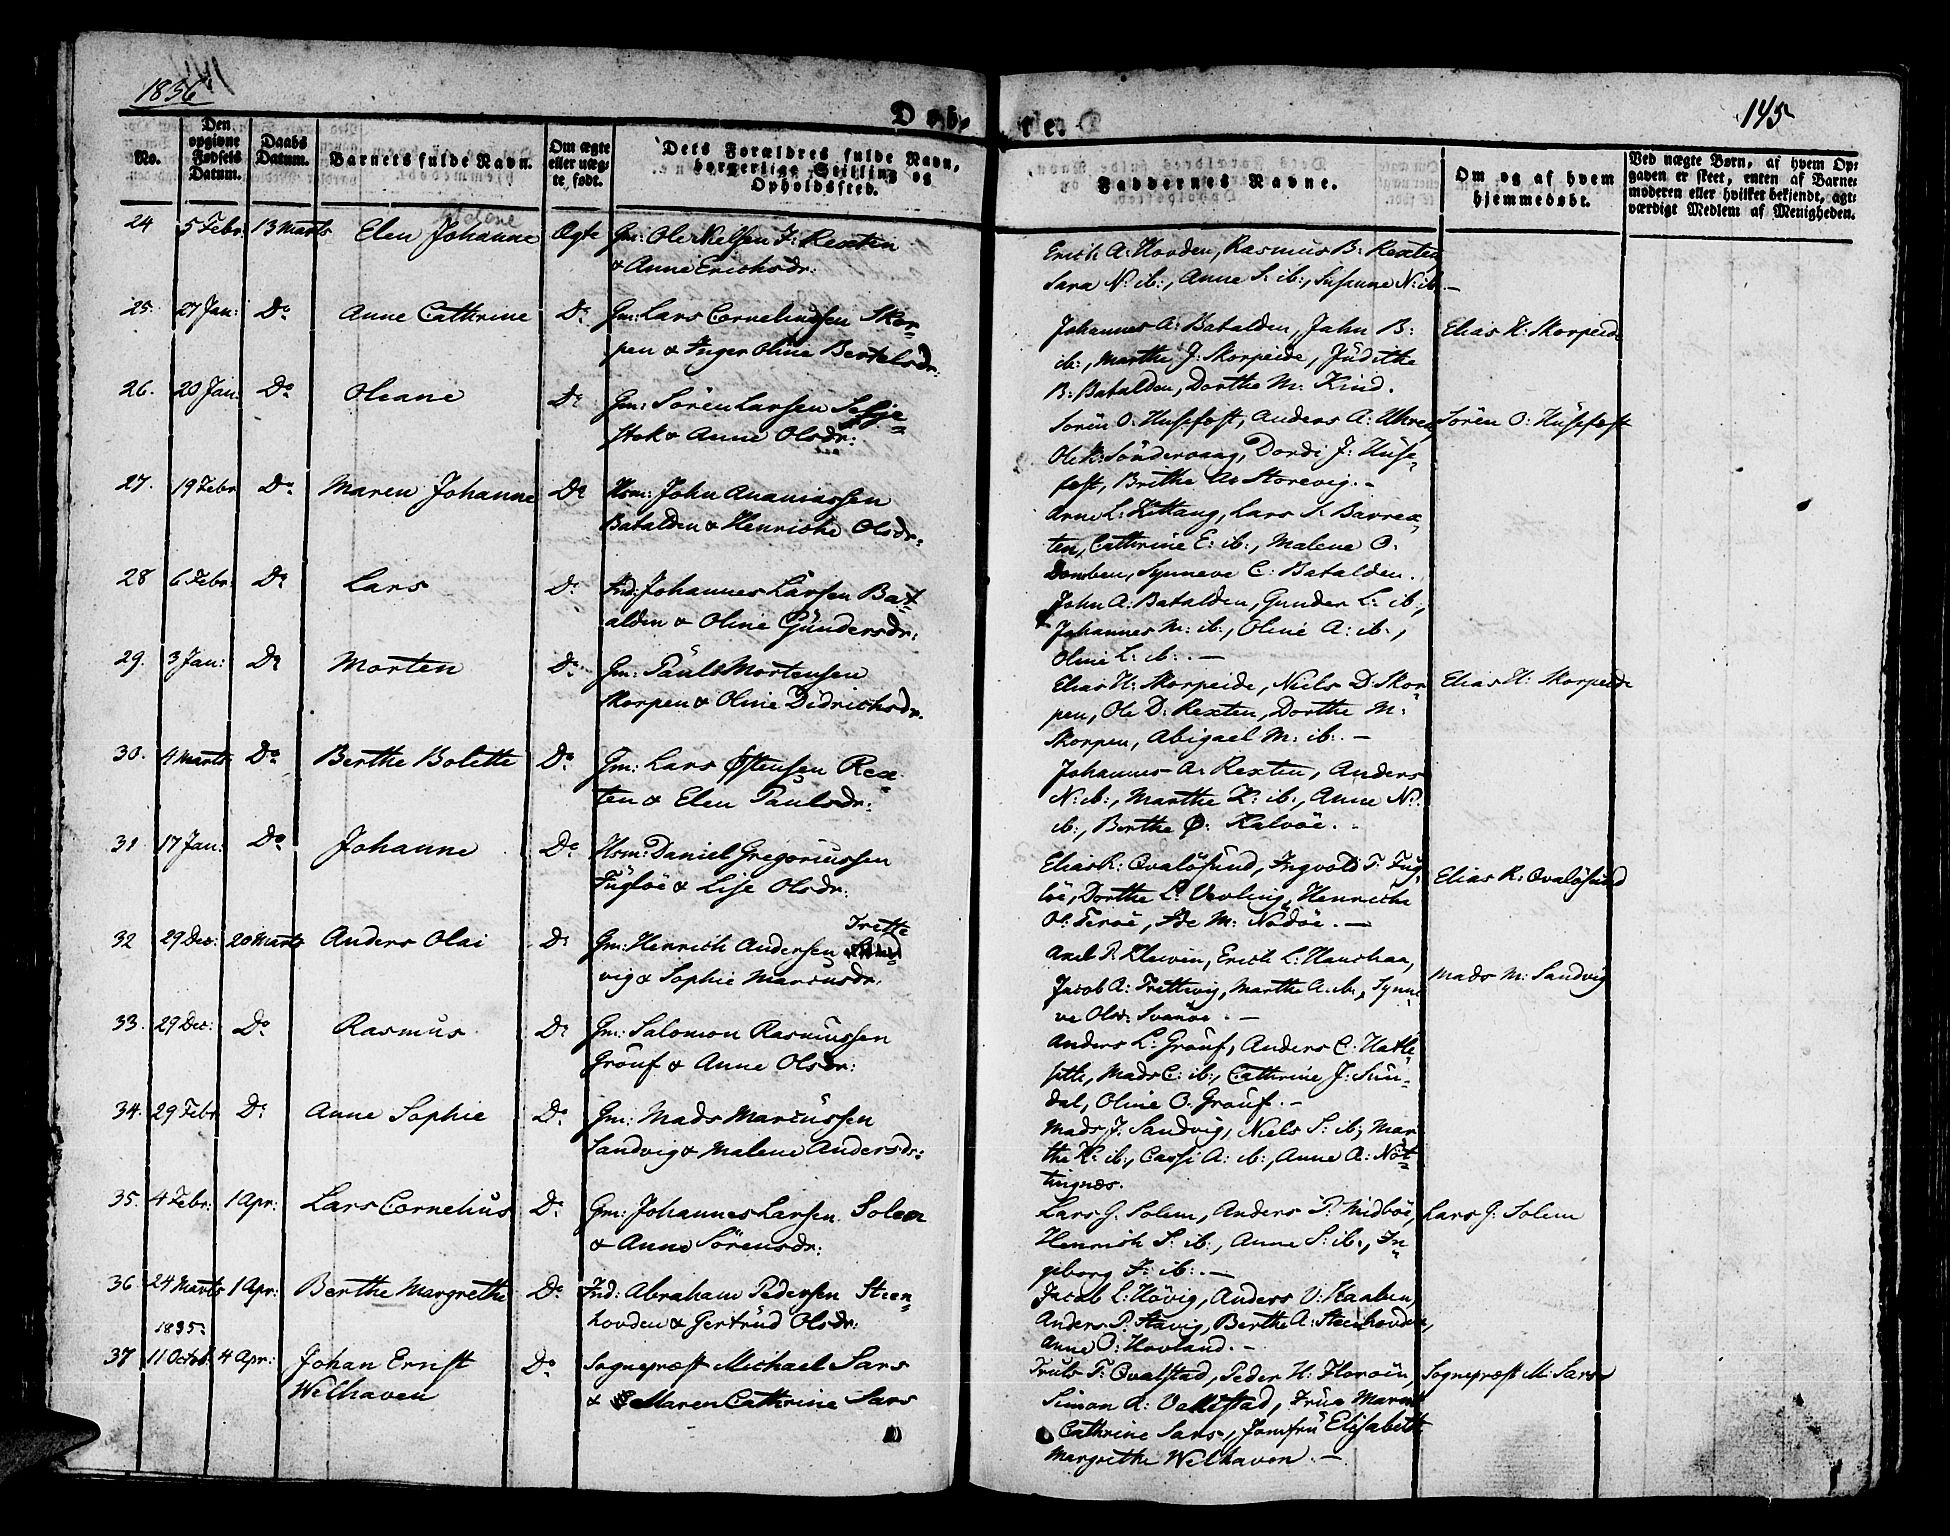 1836
145
Døb-
te.
No.
Den opgivne Fødsels Datum.
Daabs Datum.
Barnets fulde Navn.
Om ægte eller uægte født.
Dets Forældres fulde Navn, borgerlige Stilling og Opholdssted.
Faddernes Navne.
Om og af hvem hjemmedøbt.
Ved uægte Børn, af hvem Opgaven er skeet, enten af Barnemoderen eller hvilket bekjendt, agtværdigt Medlem af Menigheden.
24 5 Febr: 13 Marts Elen Johanne Ægte Gm: Ole Nelsen I: Rexten
& Anne Erichsdr:
Erich A: Hovden, Rasmus B: Rexten
Sara N: ib:, Anne S: ib:, Susanne N: ib. –
25. 27 Jan: Do Anne Cathrine Do Gm: Lars Corneliussen Skor-
pen & Inger Oline Bertelsdr:
Johannes A: Batalden, John B:
ib:, Marthe J: Skorpeide, Judithe
B: Batalden, Dorthe M: Kind.
Elias H: Skorpeide
26. 20 Jan: Do Oleane Do Gm: Sören Larsen Sesje-
stok & Anne Olsdr:
Sören O: Husefest, Anders A:
Ole K: Söndervaag, Dordi J: Huse-
fest, Brithe A: Storevig. –
Sören O: Husefest
27. 19 Febr Do Maren Johanne Do Hsm: John Ananiassen
Batalden & Henriche Olsdr:
Arne L: Kittang, Lars S. Barrex-
ten, Cathrine E: ib:, Malene O:
Domben, Synneve C: Batalden.
28 6 Febr: Do Lars Do Ind: Johannes Larsen Bat-
alden & Oline Gundersdr:
John A: Batalden, Gunder L: ib:,
Johannes M: ib:, Oline A: ib:,
Oline L: ib:. –
29. 3 Jan: Do Morten Do Gm: Paul Mortensen
Skorpen & Oline Didrichsdr.
Elias H: Skorpeide, Niels D: Skor-
pen, Ole D: Rexten, Dorthe M:
Skorpen, Abigael M: ib:. –
Elias H: Skorpeide
30. 4 Marts Do Berthe Bolette Do Gm: Lars Østensen Rex-
ten & Elen Paulsdr:
Johannes A: Rexten, Anders
N: ib:, Marthe K: ib:, Anne N:
ib:, Berthe Ø: Kalvöe. –
31 17 Jan: Do Johanne Do Hsm: Daniel Gregoriussen
Fuglöe & Lise Olsdr:
Elias R: Qvalösund, Ingvold T: Fug-
löe, Dorthe L: Vevling, Henriche
O: Teröe, Ide M: Nödöe. –
Elias R: Qvalösund
32 29 Dec: 20 Marts Anders Olai Do Gm: Henrich Andersen Trette
vig & Sophie Marcusdr:
Axel P. Kleiven, Erich L: Haushaa,
Jacob A: Trettevig, Marthe A: ib:, Synne-
ve Olsd: Svanöe. –
Mads M: Sandvig
33. 29 Dec: Do Rasmus Do Gm: Salomon Rasmussen
Gröuf & Anne Olsdr:
Anders L: Gröuf, Anders C: Hatle-
sette, Mads C: ib:, Cathrine J: Sun-
dal, Oline O. Gröuf. –
34. 29 Febr. Do Anne Sophie Do Gm: Mads Marcussen
Sandvig & Malene Andersdr:
Mads J: Sandvig, Niels S: ib:, Mar-
the K: ib:, Cassi A: ib:, Anne A: Nöt-
tingnæs.
35. 4 Febr: 1 Apr: Lars Cornelius Do Gm: Johannes Larsen Solem
& Anne Sörensdr:
Lars G: Solem, Anders P: Midböe,
Henrich S: ib:, Anne S: ib:, In-
geborg I: ib:. –
Lars G: Solem
36. 24 Marts 1 Apr: Berthe Margrethe Do Ind: Abraham Pedersen Steen-
hovden & Gertrud Olsdr:
Jacob L: Hövig, Anders O: Kaaben,
Anders P. Stavig, Berthe A: Steenhovden,
Anne O: Hovland. –
1835:
37 11 Octob. 4 Apr: Johan Ernst
Welhaven
Do Sognepræst Michael Sars
& Maren Cathrine Sars
Truls T: Qvalstad, Peder H: Floröen,
Simon A: Vallestad, Frue Maren
Cathrine Sars, Jomfru Elisabeth
Margrethe Welhaven. –
Sognepræst M: Sars